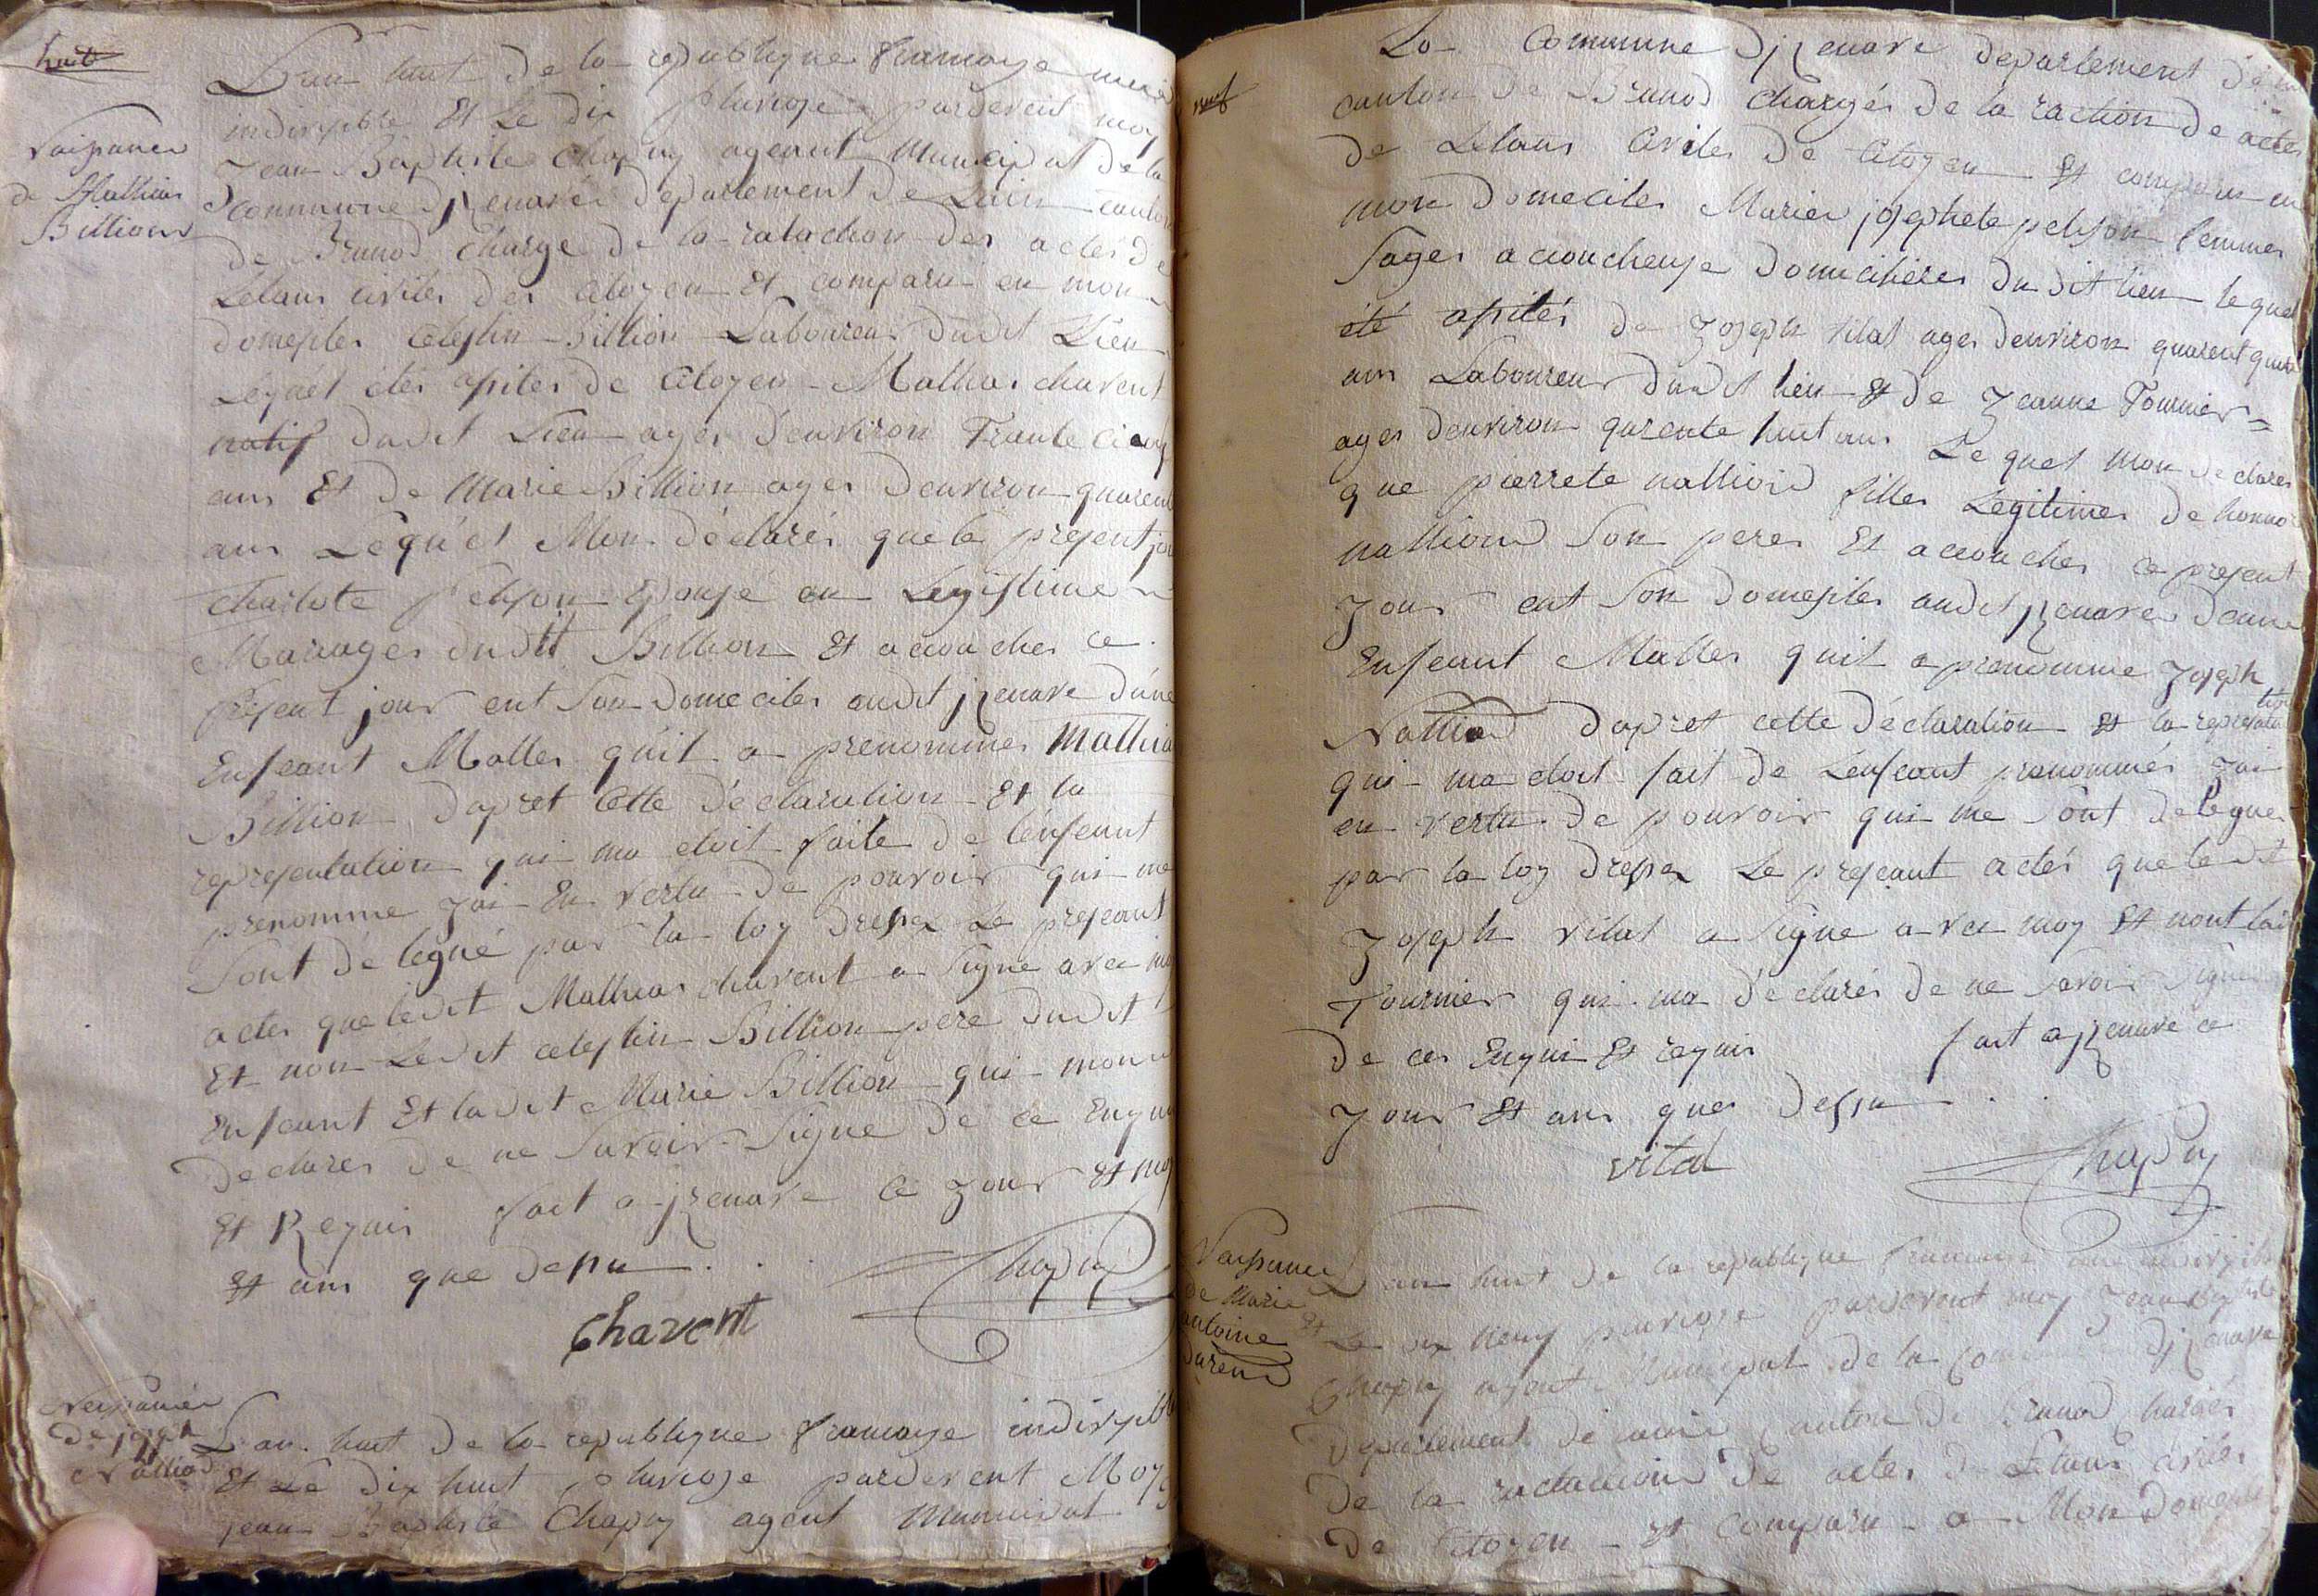 huit
Naissance
de Mathieu
Billion
L'an huit de la republique francayse une
indivisible Et Le dix pluviose pardevent moy
Jean Baptiste Chapuy ageant Municipal de la
Commune djzenave departement de Lain canton
de Brenod Charge de la radaction des actes de
Letaus civiles des citoyen Et comparu en mon
domesiles celestin Billion Laboureur dudit Lieu
Lequel étés asister de citoyen Mathias charent
natif dudit Lieu ages denviron Trante cinq
ans Et de Marie Billion ages denviron quarent
ans Lequel Mon déclarés que le present jou
Charlote pelison Epousé en Legistime
Mariages dudit Billion Et accouches ce
present jour ent Son domeciles audit jzenave dune
Enfeant Malles quil a prenommes Mathia
Billion dapret Cette declaration Et la
representation qui ma etoit faite de lenfeant
prenomme jai En vertu de pouvoir qui me
Sont délegué par la loy dresser Le preseant
actes que ledit Mathias charent a Signe avec moy
Et non Ledit celestin Billion pere dudit
Enfeant Et ladit Marie Billion qui mon
declares de ne Savoir Signe de ce Enqui
Et Requis fait a jzenave ce Jour Et
Et ans que dessu
Chapuy
Charent
Naissance
de joseph
Nallion
L'an huit de la republique francayse indivisible
Et Le dix huit pluviose pardevent Moy
jean Baptiste Chapuy agent Municipal
neuf
La Commune djzenave departement de
canton de Brenod Chargés de la raction de actes
de Letaus Civiles de Citoyen Et comparu en
mon domeciles Maries josephete pelison femmes
Sages accoucheuse domicilieres dudit lieu lequel
été asités de Joseph vitat ages denviron quarent
ans Laboureur dudit lieu Et de Jeanne Tournier
ages denviron qarente huit ans Lequel mon declares
que pierrete nallion filles Legitimes de
nallion Son peres Et accouches ce present
jour ent Son domesiles audit jzenaves deune
Enfeant Malles quil a prenomme Joseph
Nallion dapret cette declaration Et la representation
qui ma etoit fait de Lenfeant prenommés jai
en vertu de pouvoir qui me Sont delegue
par la loy dresser Le preseant actés que ledit
Joseph vitat a Signe avec moy Et nont
Tournier qui ma déclarés de ne Savoir Signe
de ces Enqui Et requis fait a jzenave ce
Jour Et ans ques dessu
vital
Chapuy
Naissance
de Marie
antoine
L an huit de la republique francayse une indivisible
Et Le dix neuf pluviose pardevent moy Jean Baptiste
Chapuy agent Municipal de la Commune djzenave
departement de Canton de Brenod charges
de la de actes de Letaus civiles
de Citoyen Et Comparu a Mon domesile